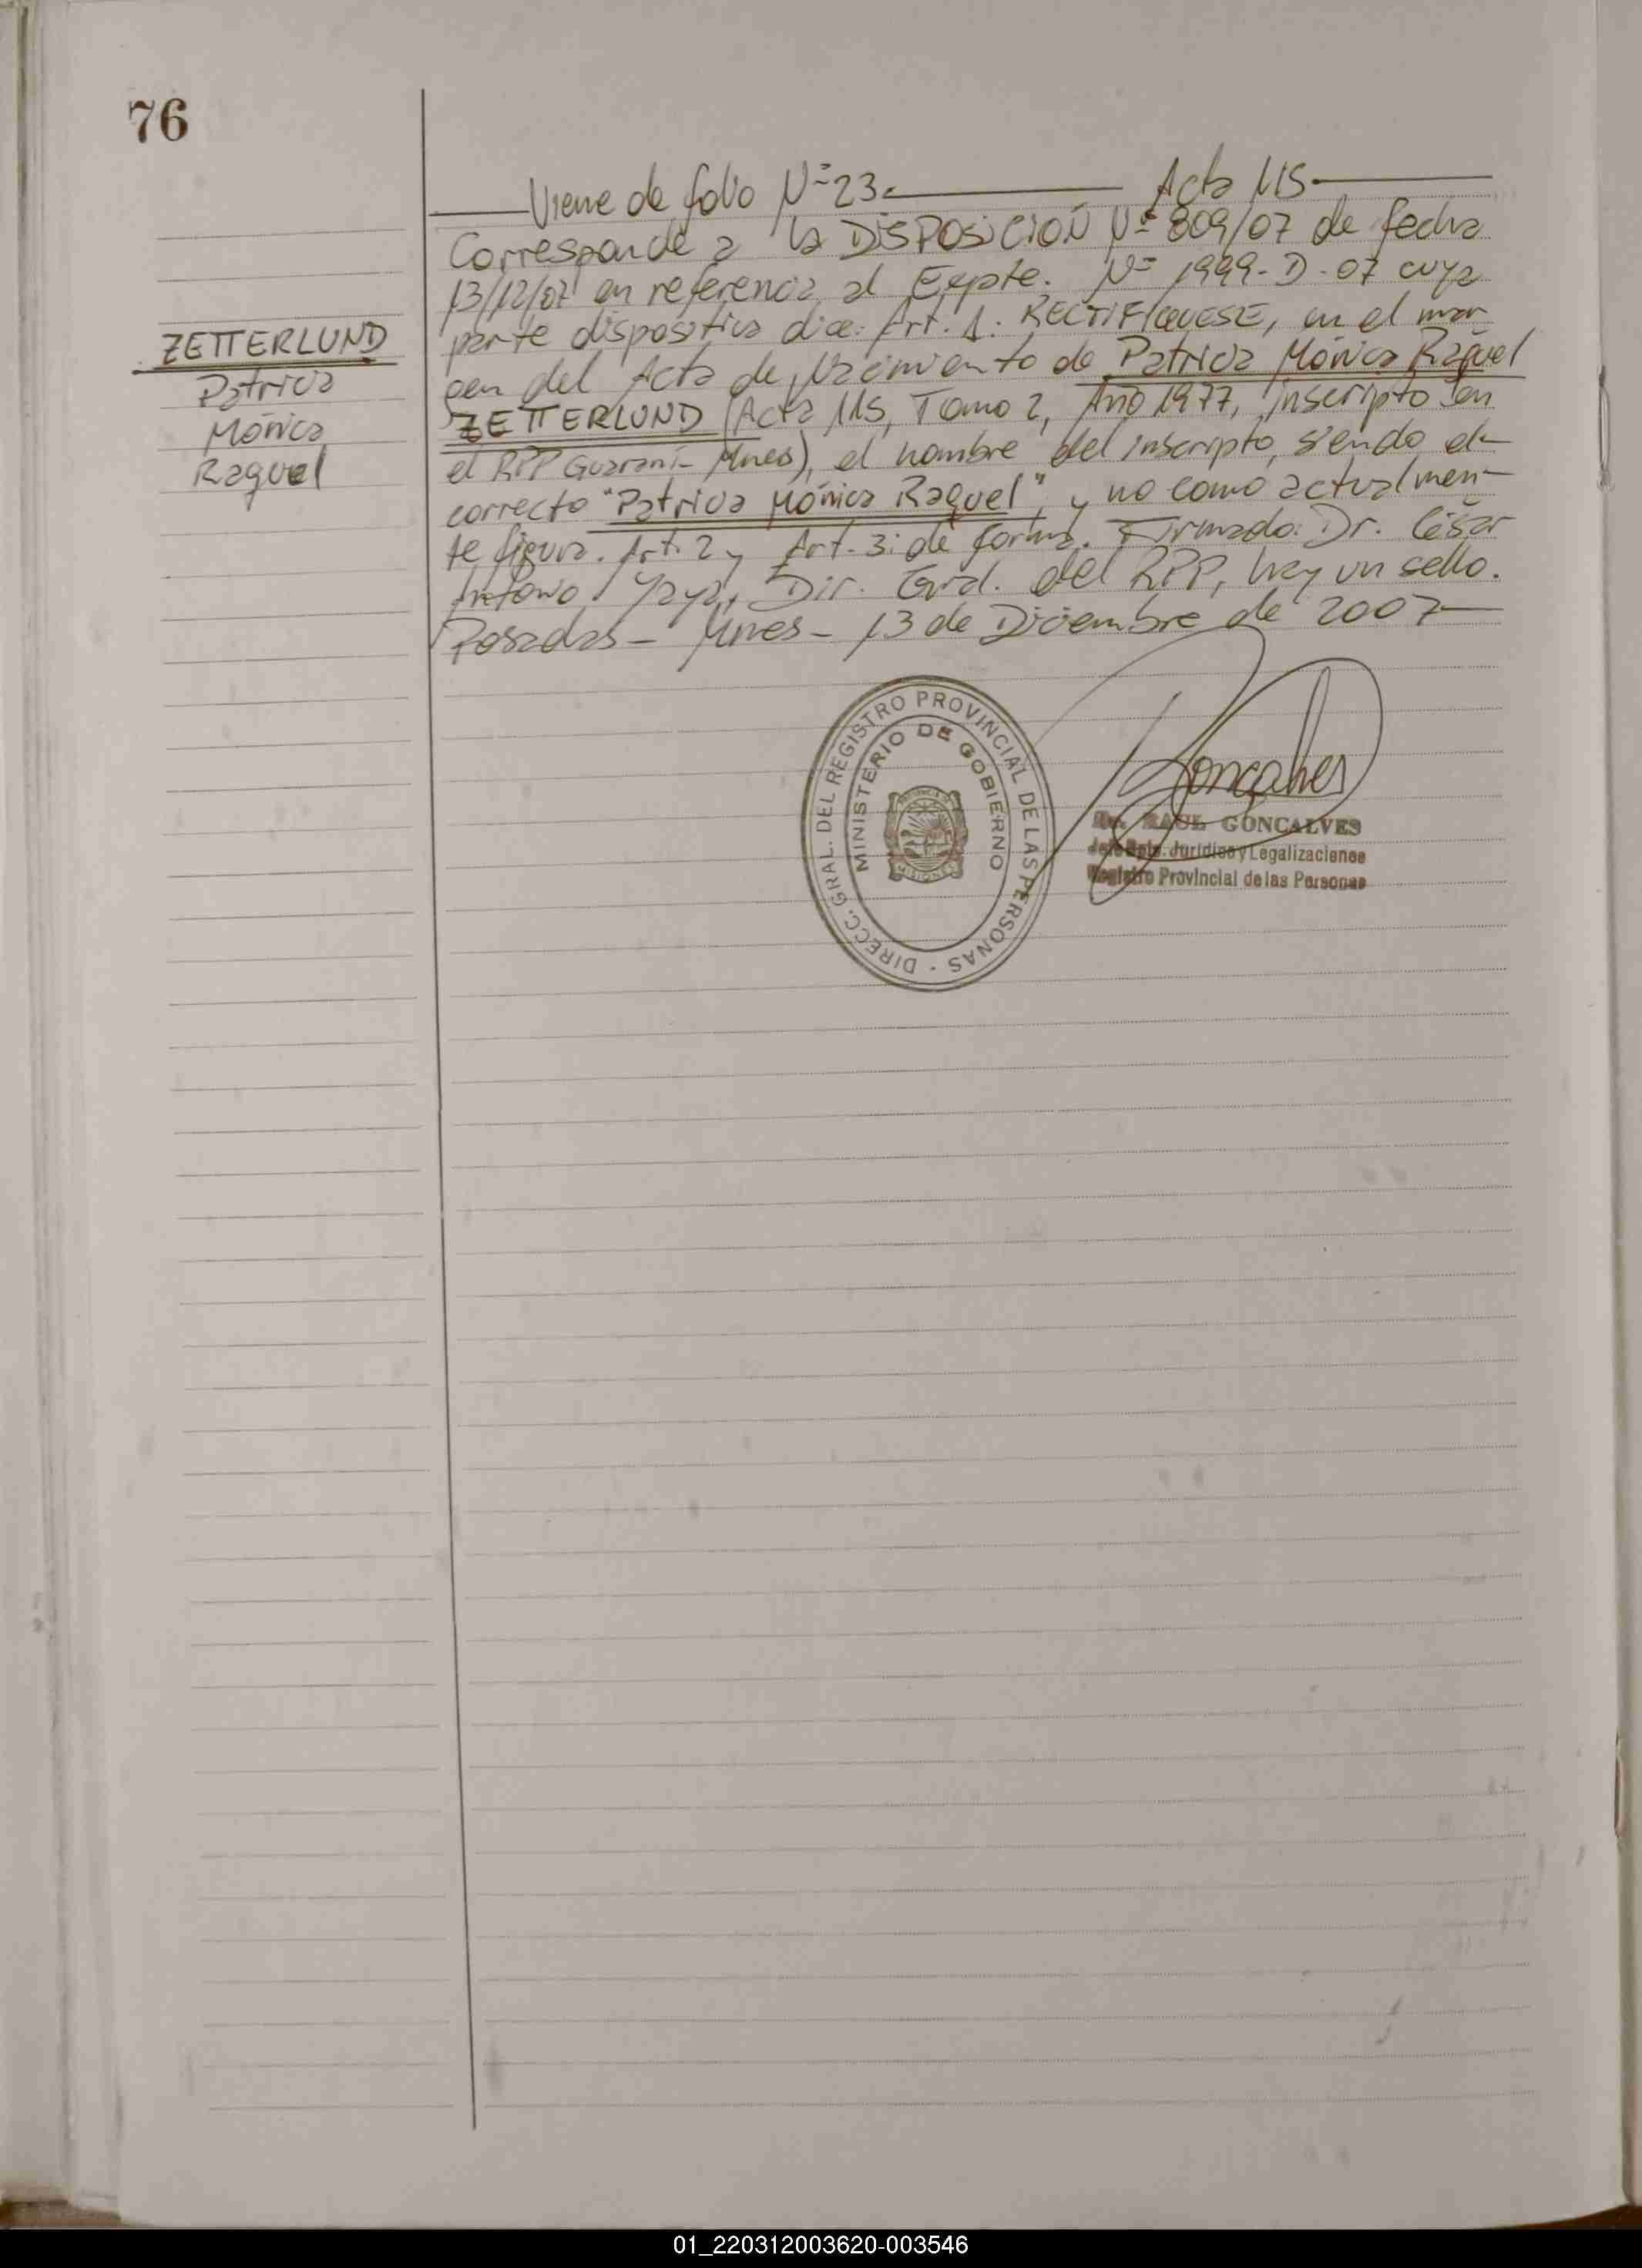 76
Viene de folio Nº 23. Acta 115.
Corresponde a la DISPOSICIÓN Nº 809/07 de fecha
13/12/07 en referencia al Expte. Nº 1999-D-07 cuya
parte dispositiva dice: Art. 1: RECTIFIQUESE, en el mar
gen del Acta de Nacimiento de Patricia Mónica Raquel
ZETTERLUND (Acta 115, Tomo 2, Año 1977, inscripto en
el RPP Guaraní- Mnes), el nombre del inscripto, siendo el
correcto "Patricia Mónica Raquel", y no como actualmen-
te figura. Art. 2 y Art. 3: de forma. Firmado: Dr. César
Antonio Yaya, Dir. Gral. del RPP, hay un sello.
Posadas - Mnes - 13 de Diciembre de 2007
ZETTERLUND
Patricia
Mónica
Raquel
DIRECC. GRAL. DEL REGISTRO PROVINCIAL DE LAS PERSONAS
MINISTERIO DE GOBIERNO
MISIONES
Goncalves
RAUL GONCALVES
Jefe Dpto. Jurídico y Legalizaciones
Registro Provincial de las Personas
01_220312003620-003546